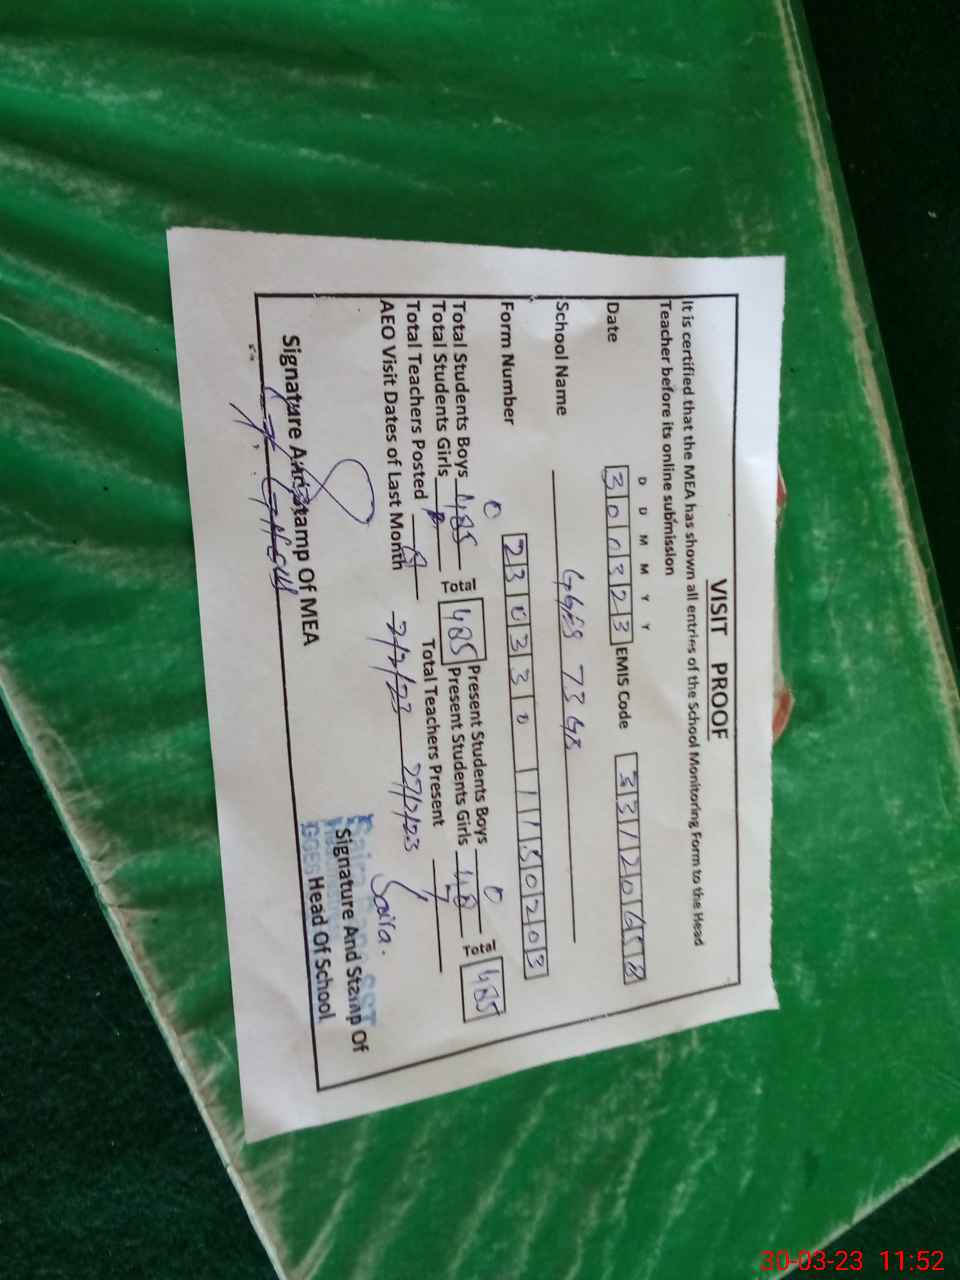 VISIT PROOF
It is certified that the MEA has shown all entries of the School Monitoring Form to the Head
Teacher before its online submission
D D M M Y Y
Date 300323 EMIS Code 33120658
School Name GGES 73 GB
Form Number 230330 1150203
Total Students Boys 485 Present Students Boys 0
Total Students Girls Total 485 Present Students Girls Total 485
Total Teachers Posted Total Teachers Present
AEO Visit Dates of Last Month 27/2/23
Saira.
Signature And Stamp Of MEA
Signature And Stamp Of
Head Of School
30-03-23 11:52